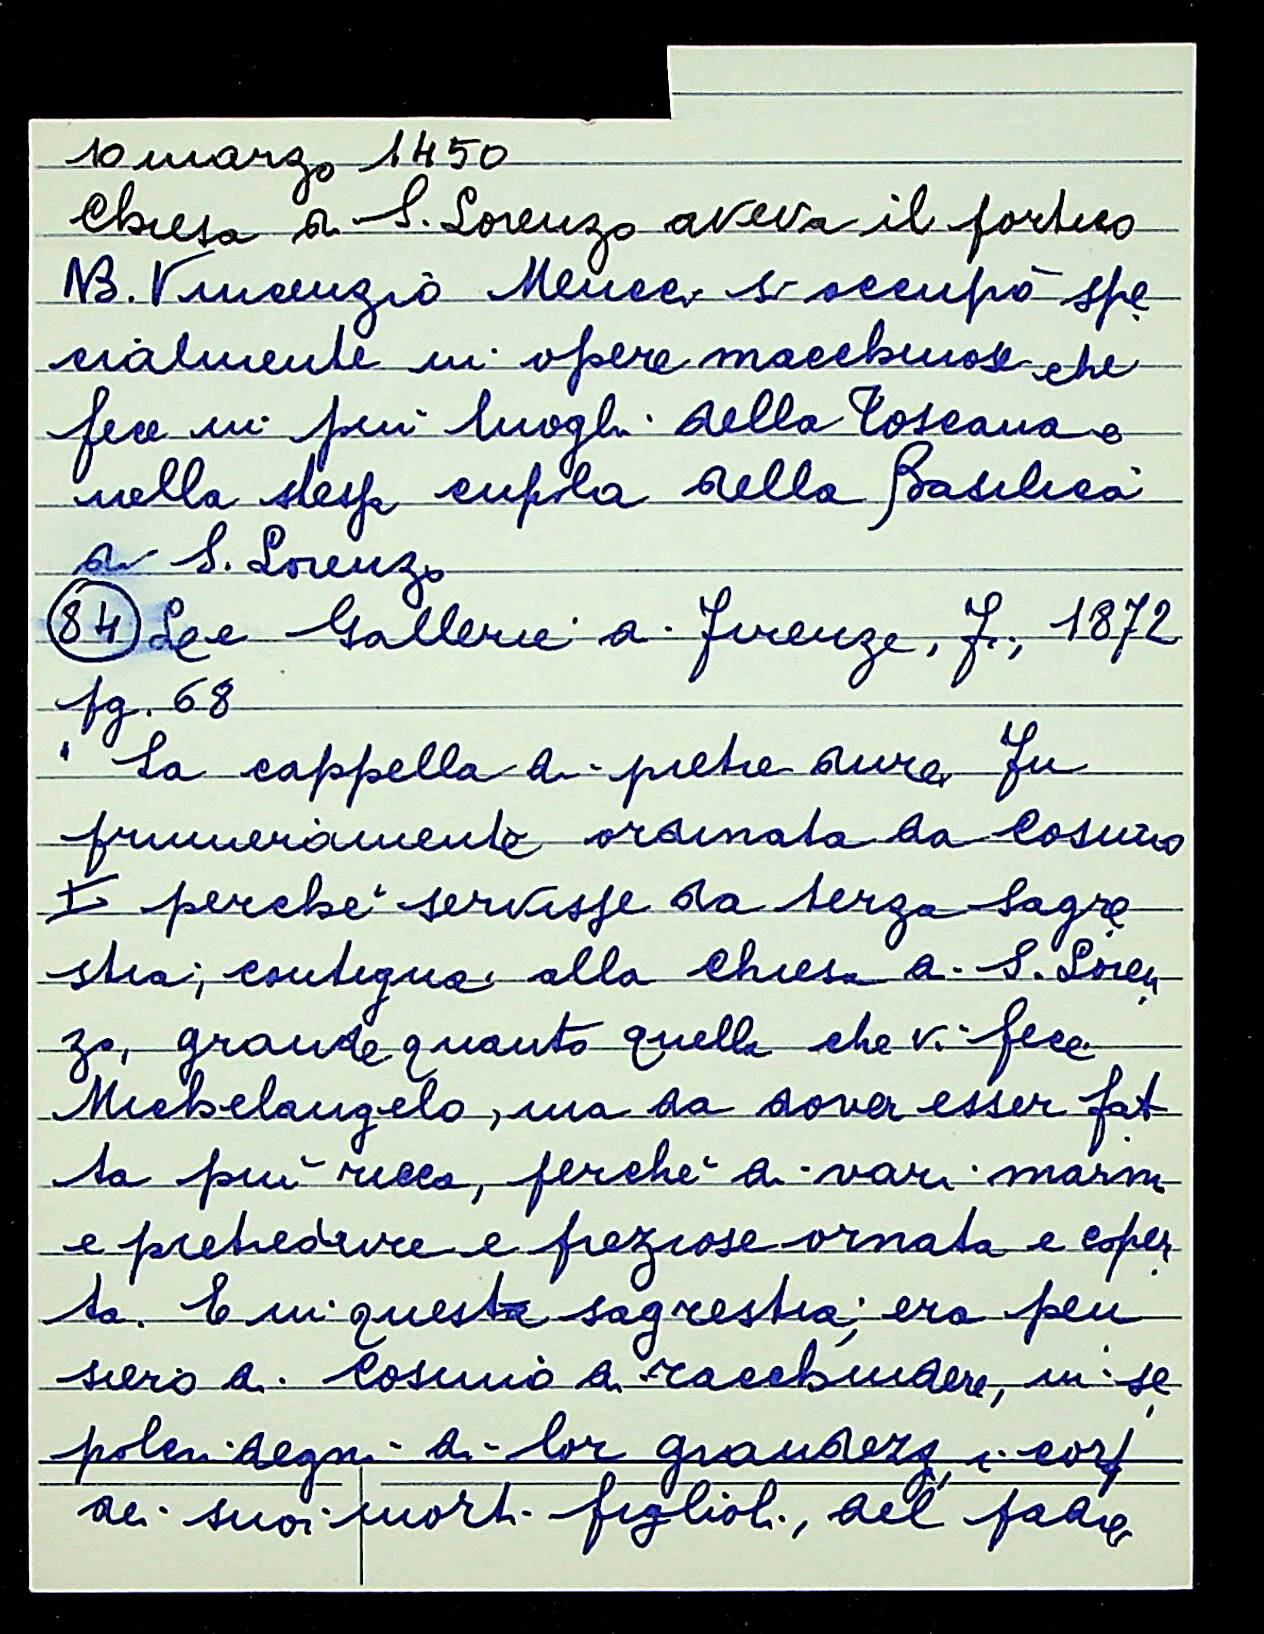 10 marzo 1450
Chiesa di S. Lorenzo aveva il portico
NB. Vincenzio Meucci si occupò spe
cialmente in opere macchinose che
fece in più luoghi della Toscana e
nella stessa cupola della Basilica
di S. Lorenzo
84 Le Gallerie di Firenze, F., 1872
pg. 68
" La cappella di pietre dure fu
primieramente ordinata da Cosimo
I perché servisse da terza sagre
stia, contigua alla chiesa di S. Loren
zo, grande quanto quella che vi fece
Michelangelo, ma da dover esser fat
ta più ricca, perché di vari marmi
e pietre dure e preziose ornata e coper
ta. E in questa sagrestia, era pen
siero di Cosimo di racchiudere, in se
polcri degni di lor grandezza, i corpi
dei suoi morti figlioli, del padre